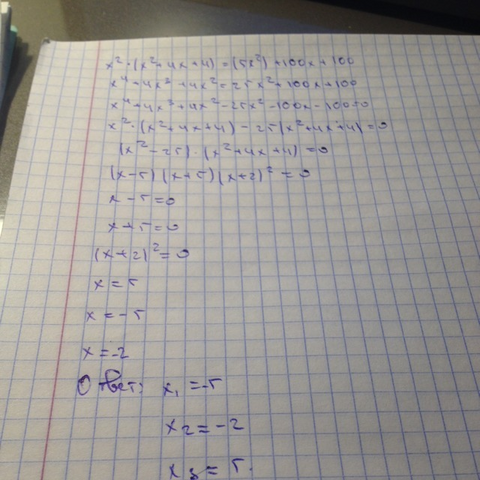 x² · (x² + 4x + 4) = (5x²) + 100x + 100
x⁴ + 4x³ + 4x² = 25x² + 100x + 100
x⁴ + 4x³ + 4x² - 25x² - 100x - 100 = 0
x² · (x² + 4x + 4) - 25(x² + 4x + 4) = 0
(x² - 25) · (x² + 4x + 4) = 0
(x - 5)(x + 5)(x + 2)² = 0
x - 5 = 0
x + 5 = 0
(x + 2)² = 0
x = 5
x = -5
x = -2
Ответ: x₁ = -5
x₂ = -2
x₃ = 5.